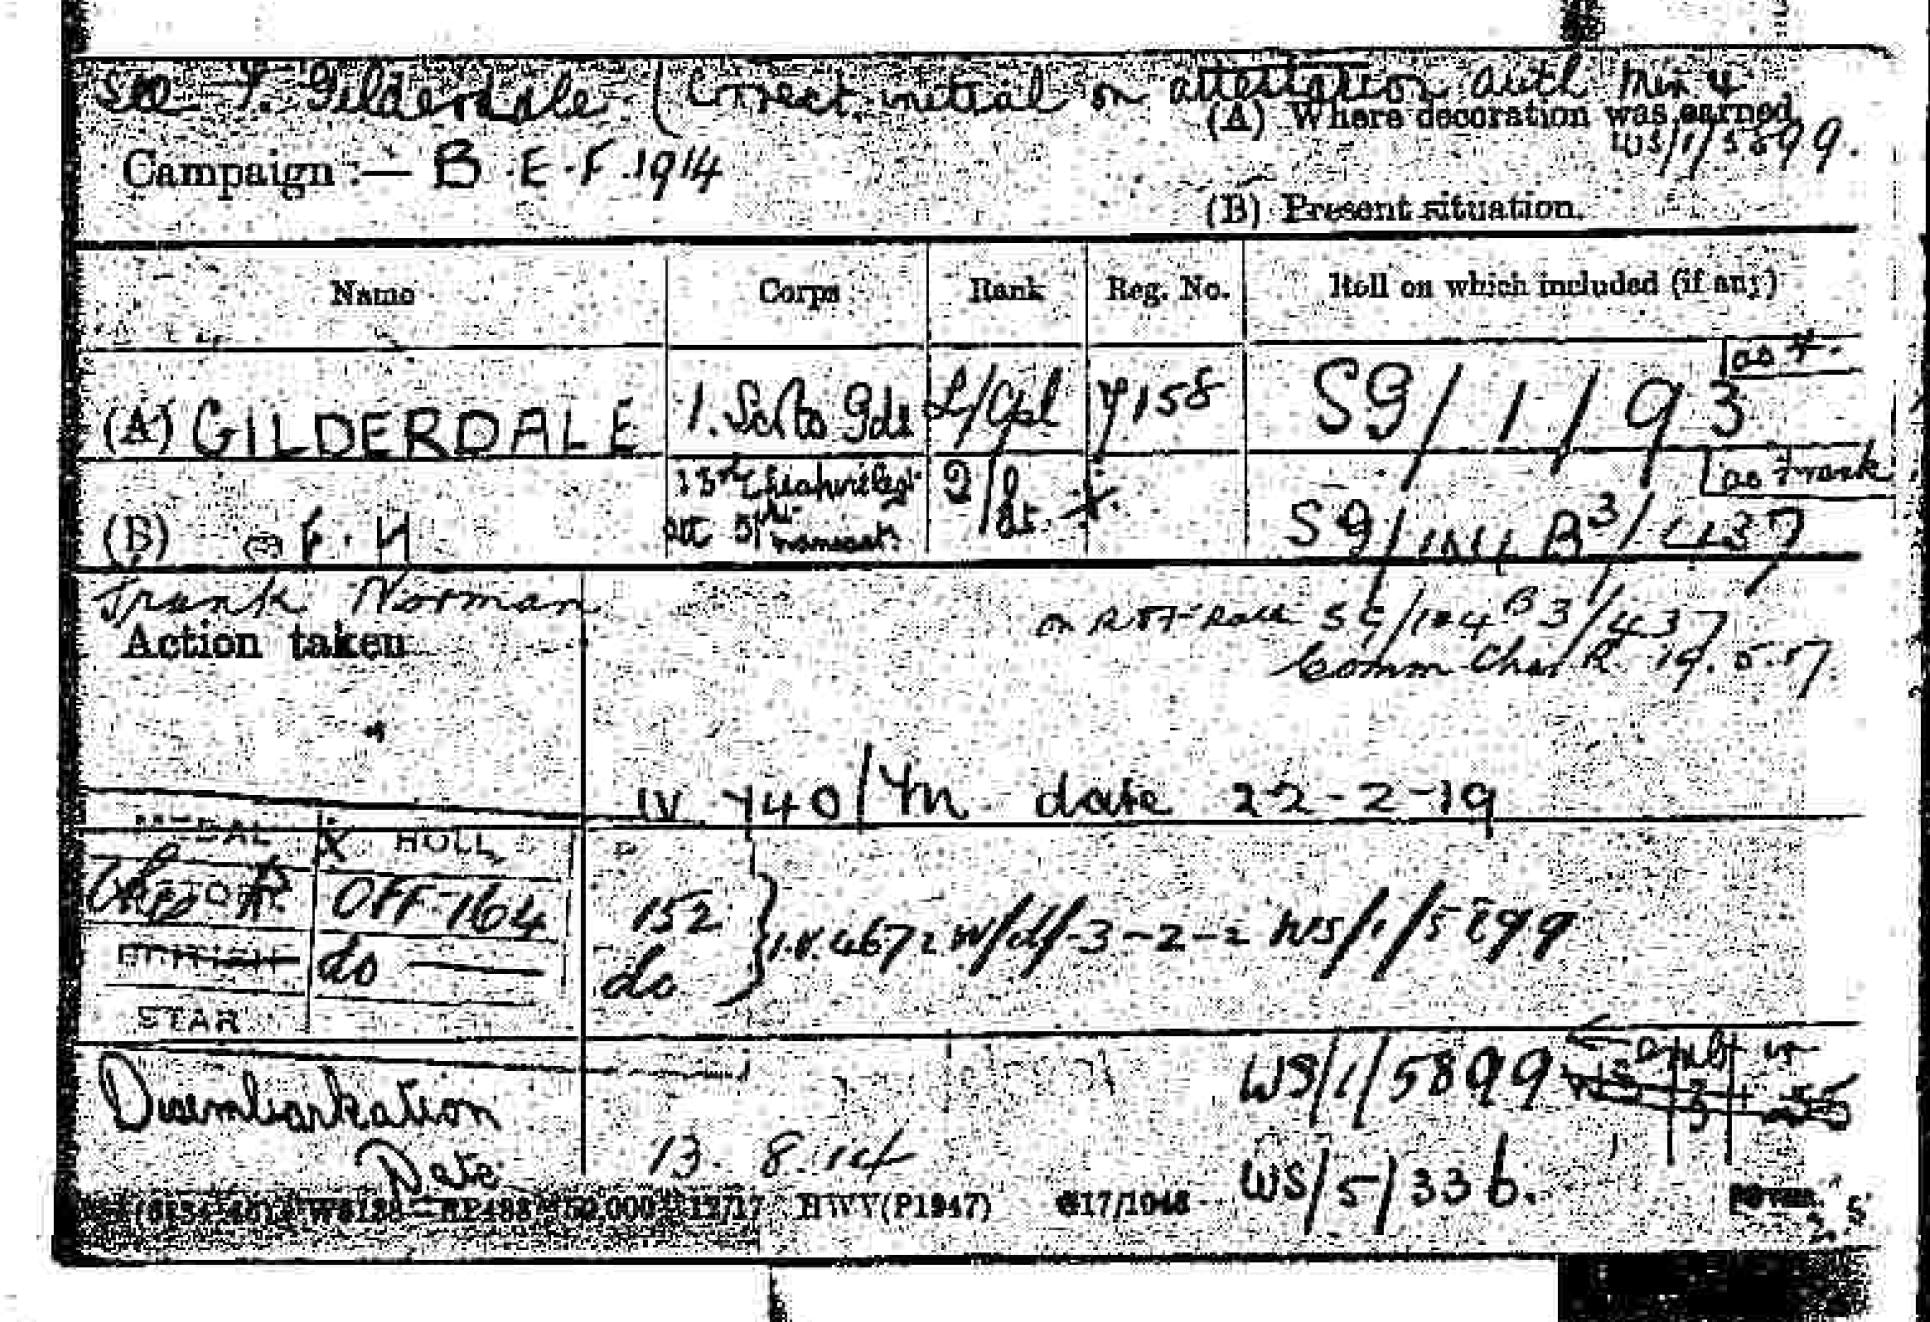 See F. Gilderdale (Correct initial on attestation auth Min 4
(A) Where decoration was earned.
WS/1/5899.
Campaign :— B.E.F. 1914
(B) Present situation.
Name Corps Rank Reg. No. Roll on which included (if any)
as F.
(A) GILDERDALE 1. Scots Gds L/Cpl 7158 SG/1/93
as Frank
(B) F. N 13th Cheshire Regt 2/Lt SG/104 B3/437
att 5th
Frank Norman
Action taken
on Roll SG/104 B3/437
Comm Ches R 19.5.17
IV 740/ date 22-2-19
MEDAL ROLL
VICTORY OFF 164 152
BRITISH do do
I.V. 4672 WS/1/5899
STAR
Disembarkation
Date 13. 8. 14
WS/1/5899
WS/5/33 b.
50,000 12/17 HWV(P1947) G17/1046